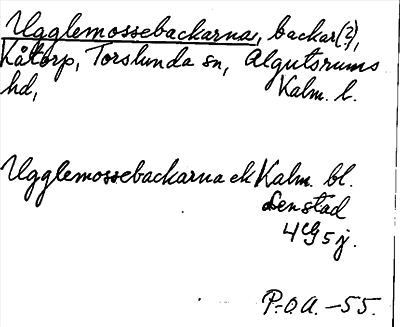 Ugglemossebackarna, backar(?),
Kåtorp, Torslunda sn, Algutsrums
hd, Kalm. l.
Ugglemossebackarna ek Kalm. bl.
Lenstad
4G5j.
P.O.A. -55.